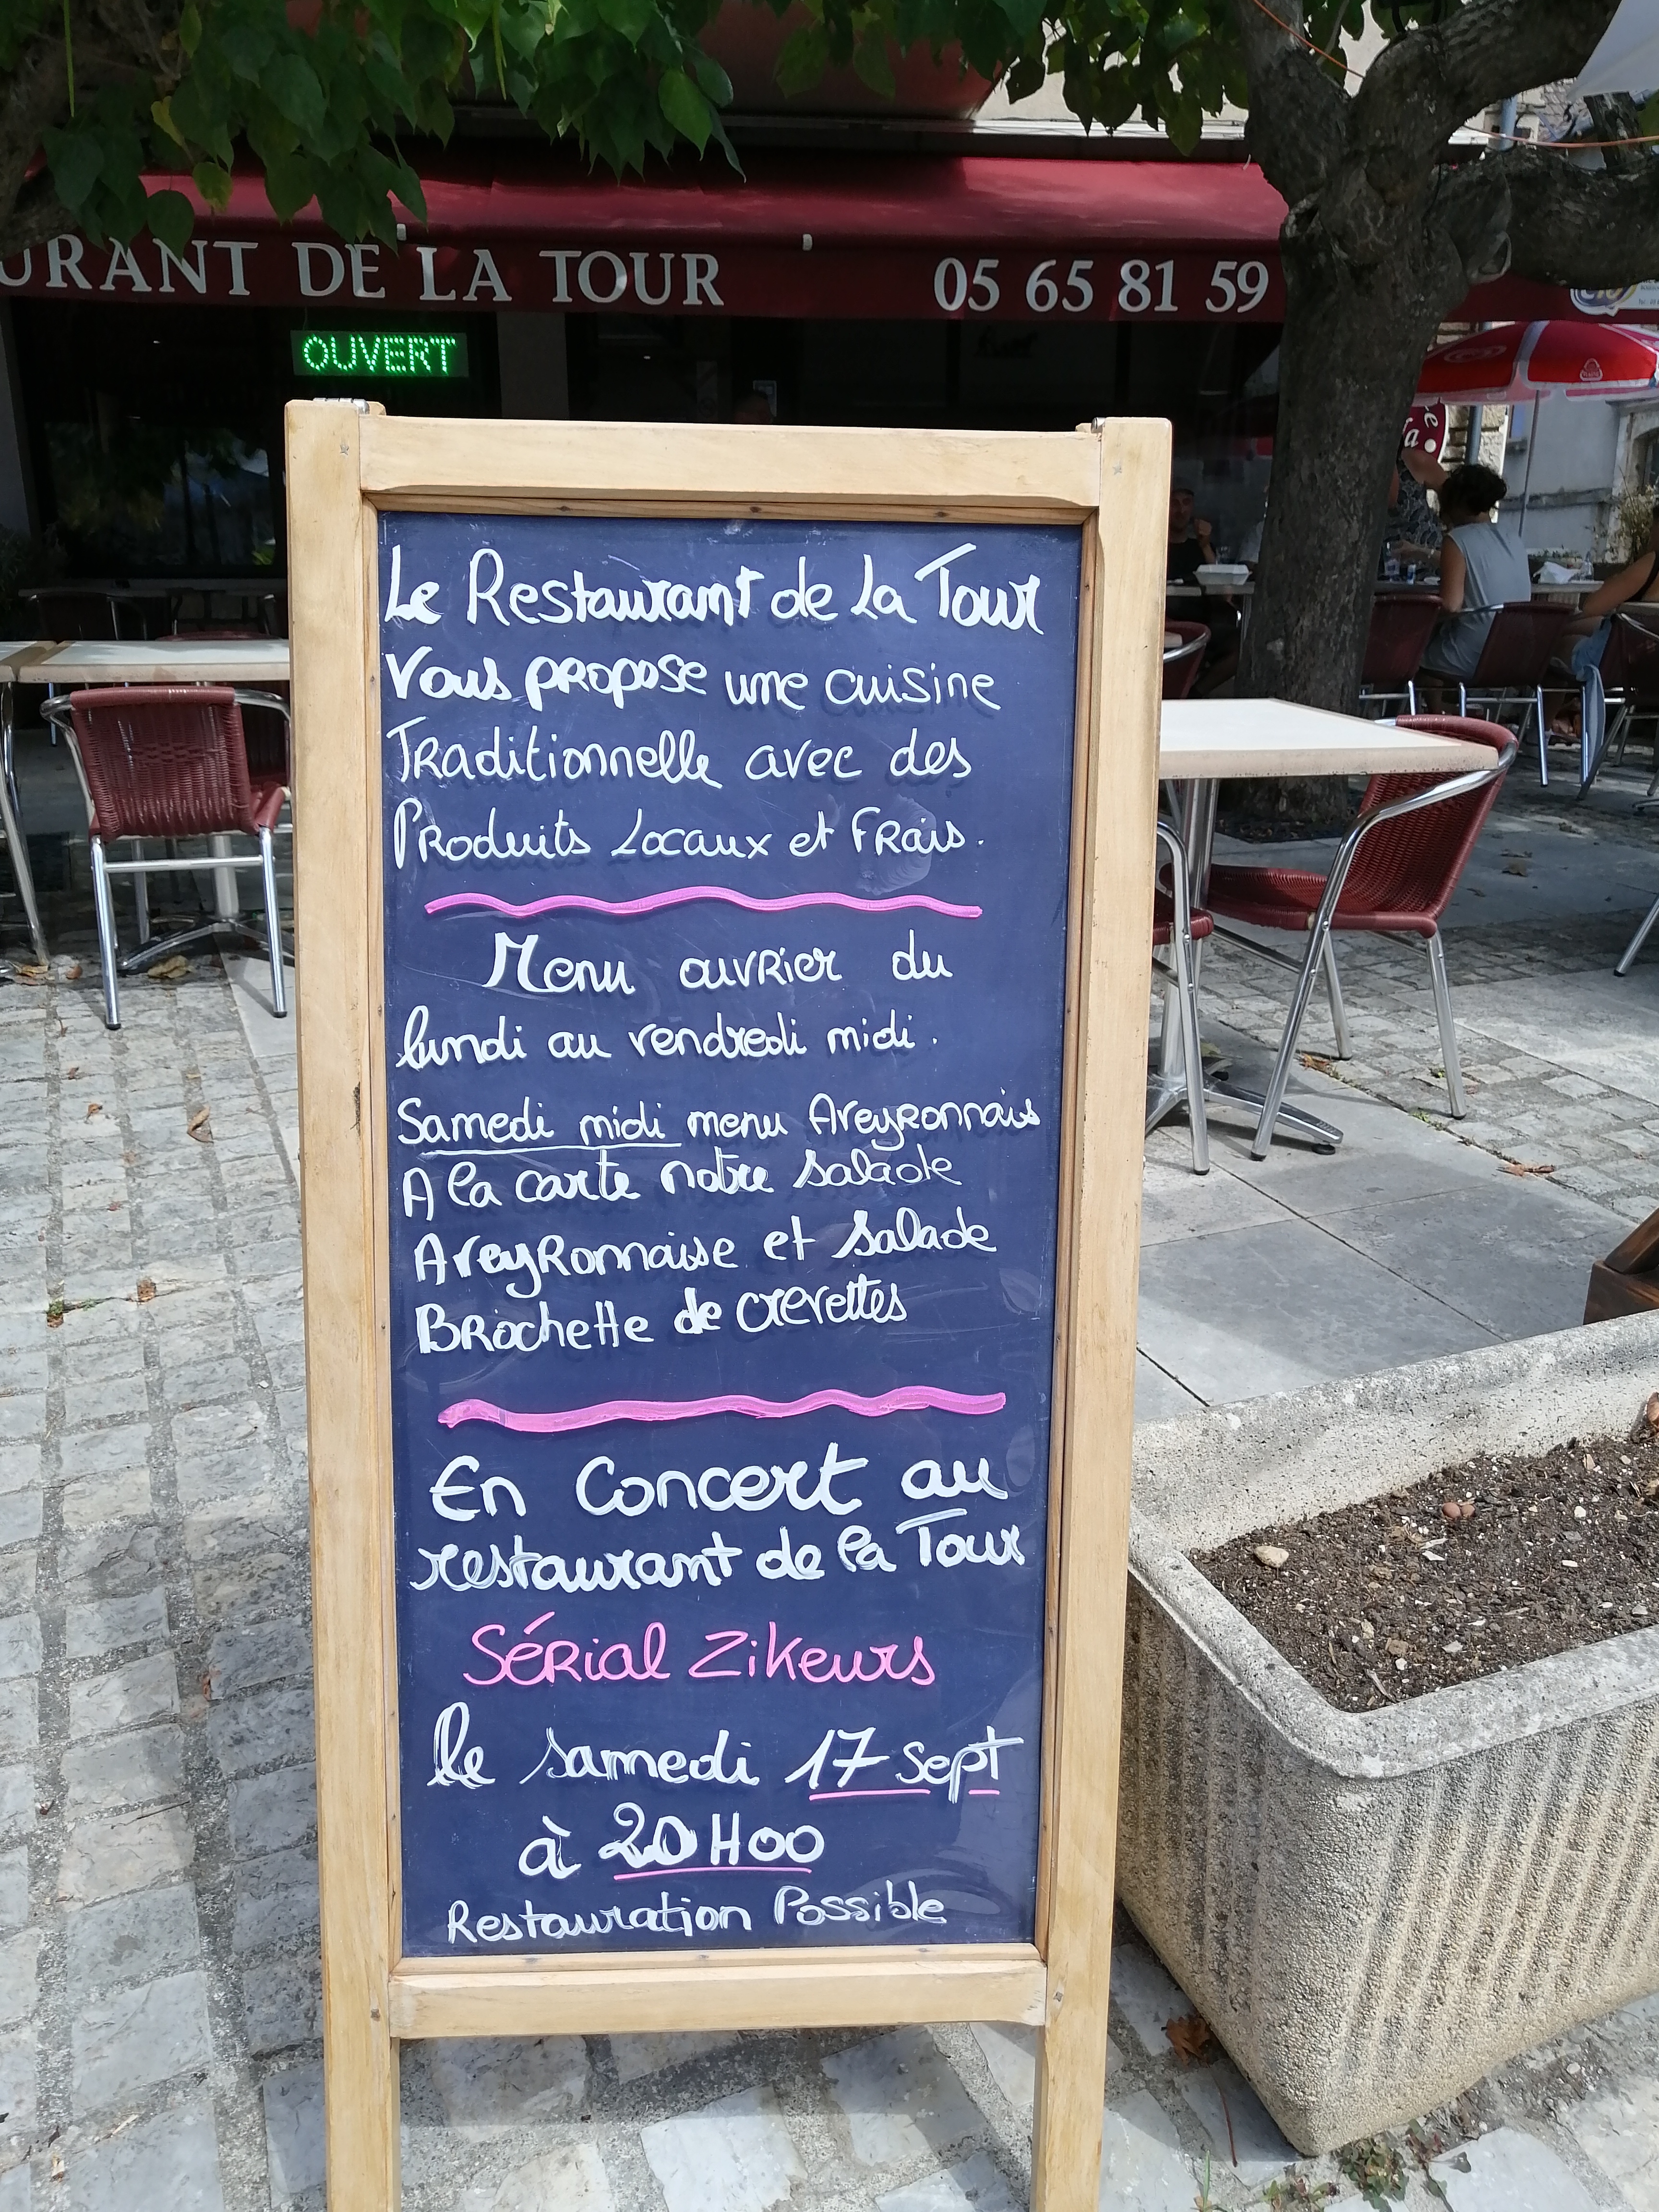 URANT DE LA TOUR 05 65 81 59
OUVERT
Le Restaurant de La Tour
Vous propose une cuisine
Traditionnelle avec des
Produits Locaux et Frais.
Menu ouvrier du
lundi au vendredi midi.
Samedi midi menu Aveyronnais
A la carte notre salade
Aveyronnaise et salade
Brochette de crevettes
En Concert au
restaurant de la Tour
Sérial Zikeurs
le samedi 17 Sept
à 20H00
Restauration Possible